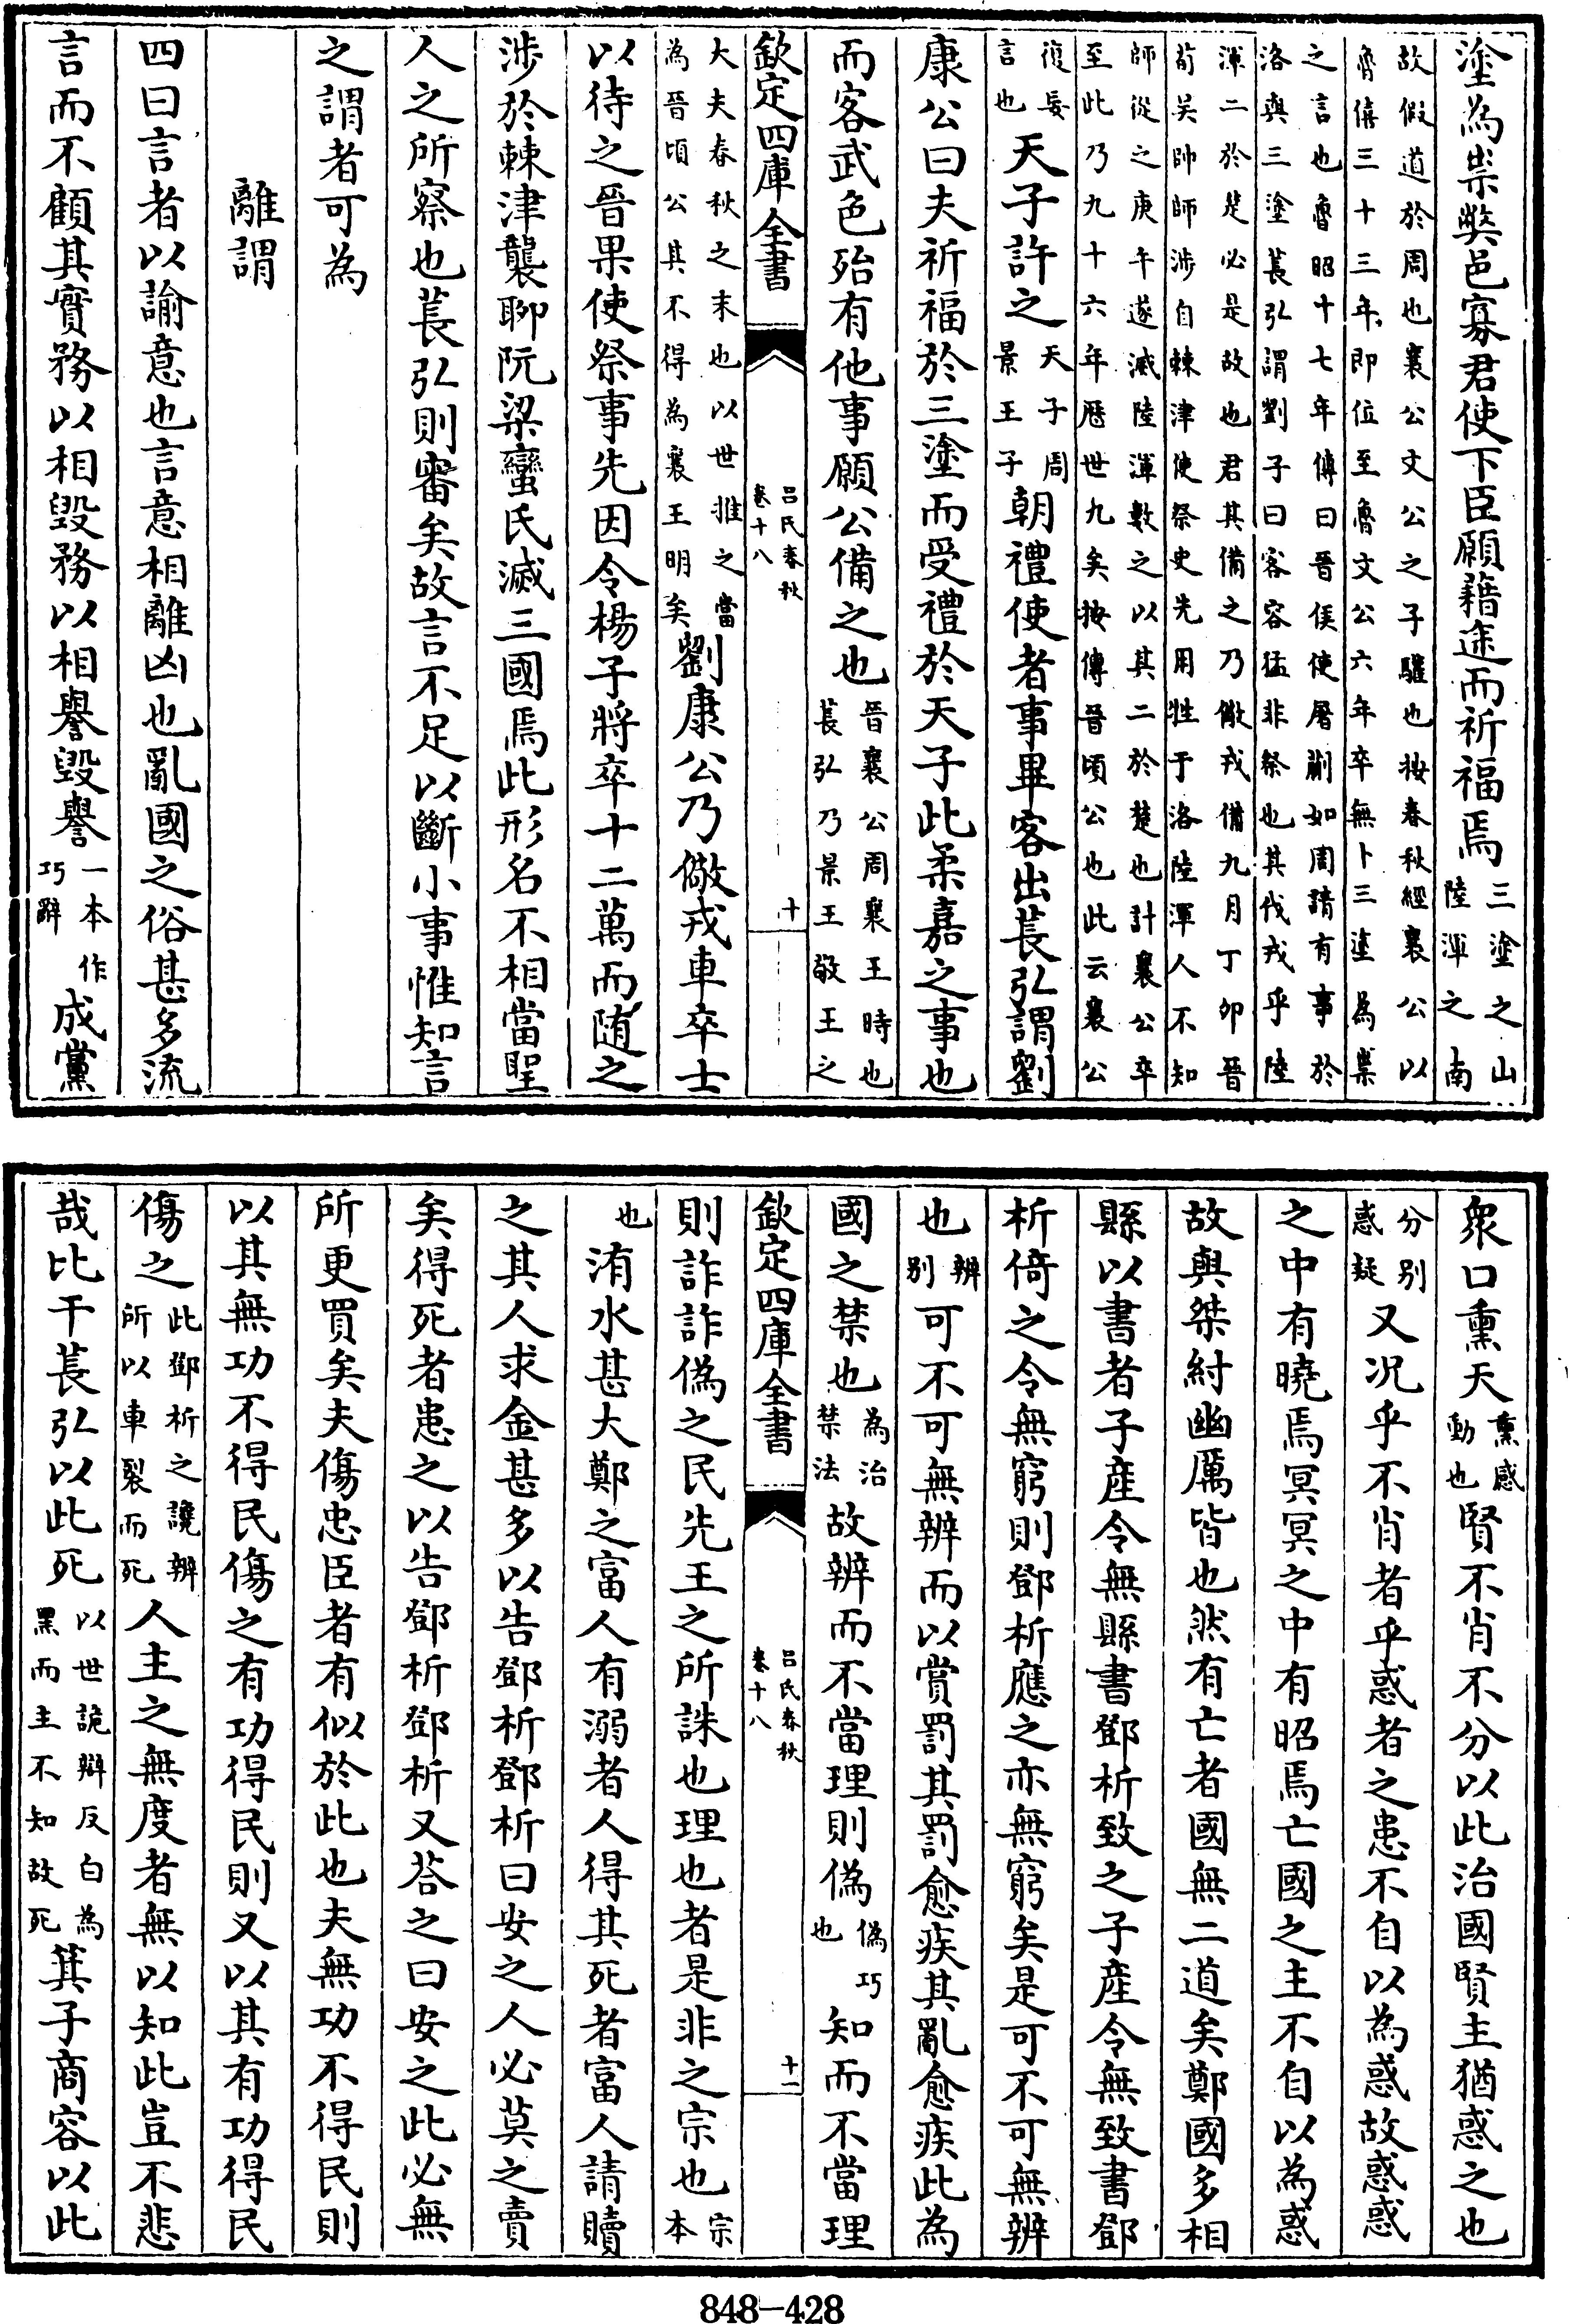 塗為祟弊邑寡君使下臣願藉途而祈福焉三塗之山陸渾之南
故假道於周也襄公文公之子驩也按春秋經襄公以
魯僖三十三年即位至魯文公六年卒無卜三塗為祟
之言也魯昭十七年傳曰晉侯使屠蒯如周請有事於
洛與三塗萇弘謂劉子曰客容猛非祭也其伐戎乎陸
渾二於楚必是故也君其備之乃儆戎備九月丁卯晉
荀吳帥師涉自棘津使祭史先用牲于洛陸渾人不知
師從之庚午遂滅陸渾數之以其二於楚也計襄公卒
至此乃九十六年歷世九矣按傳晉頃公也此云襄公
復妄言也天子許之天子周景王子朝禮使者事畢客出萇弘謂劉
康公曰夫祈福於三塗而受禮於天子此柔嘉之事也
而客武色殆有他事願公備之也晉襄公周襄王時也萇弘乃景王敬王之
欽定四庫全書 呂氏春秋 卷十八 十
大夫春秋之末也以世推之當為晉頃公其不得為襄王明矣劉康公乃儆戎車卒士
以待之晉果使祭事先因令楊子將卒十二萬而随之
涉於棘津襲聊阮梁蠻氏滅三國焉此形名不相當聖
人之所察也萇弘則審矣故言不足以斷小事惟知言
之謂者可為
離謂
四曰言者以諭意也言意相離凶也亂國之俗甚多流
言而不顧其實務以相毀務以相譽毀譽一本作巧辭成黨
衆口熏天熏感動也賢不肖不分以此治國賢主猶惑之也
分別惑疑又况乎不肖者乎惑者之患不自以為惑故惑惑
之中有曉焉冥冥之中有昭焉亡國之主不自以為惑
故與桀紂幽厲皆也然有亡者國無二道矣鄭國多相
縣以書者子産令無縣書鄧析致之子産令無致書鄧
析倚之令無窮則鄧析應之亦無窮矣是可不可無辨
也辨別可不可無辨而以賞罰其罰愈疾其亂愈疾此為
國之禁也為治禁法故辨而不當理則偽偽巧也知而不當理
欽定四庫全書 呂氏春秋 卷十八 十一
則詐詐偽之民先王之所誅也理也者是非之宗也宗本
也洧水甚大鄭之富人有溺者人得其死者富人請贖
之其人求金甚多以告鄧析鄧析曰安之人必莫之賣
矣得死者患之以告鄧析鄧析又荅之曰安之此必無
所更買矣夫傷忠臣者有似於此也夫無功不得民則
以其無功不得民傷之有功得民則又以其有功得民
傷之此鄧析之譊辨所以車裂而死人主之無度者無以知此豈不悲
哉比干萇弘以此死以世詭辯反白為黑而主不知故死箕子商容以此
848-428